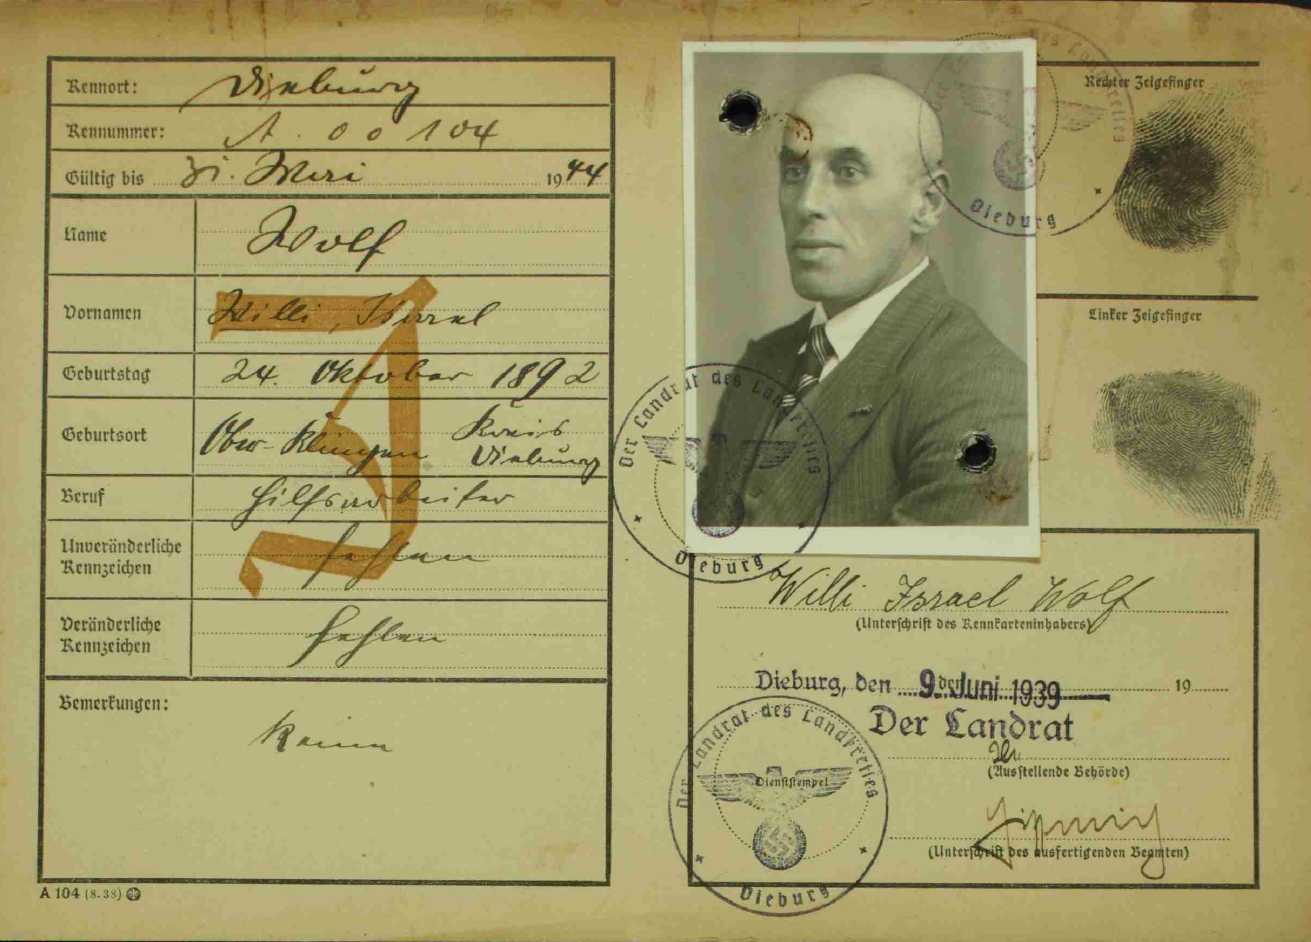 Kennort: Dieburg
Kennummer: A. 00104
Gültig bis 31. Mai 1944
Name Wolf
Vornamen Willi, Israel
Geburtstag 24. Oktober 1892
Geburtsort Ober-Klingen Kreis
Dieburg
Beruf Hilfsarbeiter
Unveränderliche
Kennzeichen fehlen
Veränderliche
Kennzeichen fehlen
Bemerkungen:
Keine
J
A 104 (8.38)
Rechter Zeigefinger
Linker Zeigefinger
Der Landrat des Landkreises
Dieburg
Der Landrat des Landkreises
Dieburg
Willi Israel Wolf
(Unterschrift des Kennkarteninhabers)
Dieburg, den 9. Juni 1939
den 19
Der Landrat
(Ausstellende Behörde)
Der Landrat des Landkreises
Dienststempel
Dieburg
(Unterschrift des ausfertigenden Beamten)